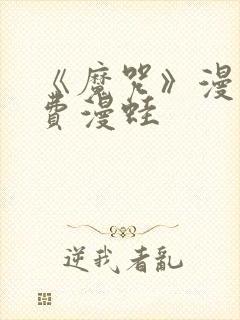 《魔咒》漫
費漫蛙
逆我者亂